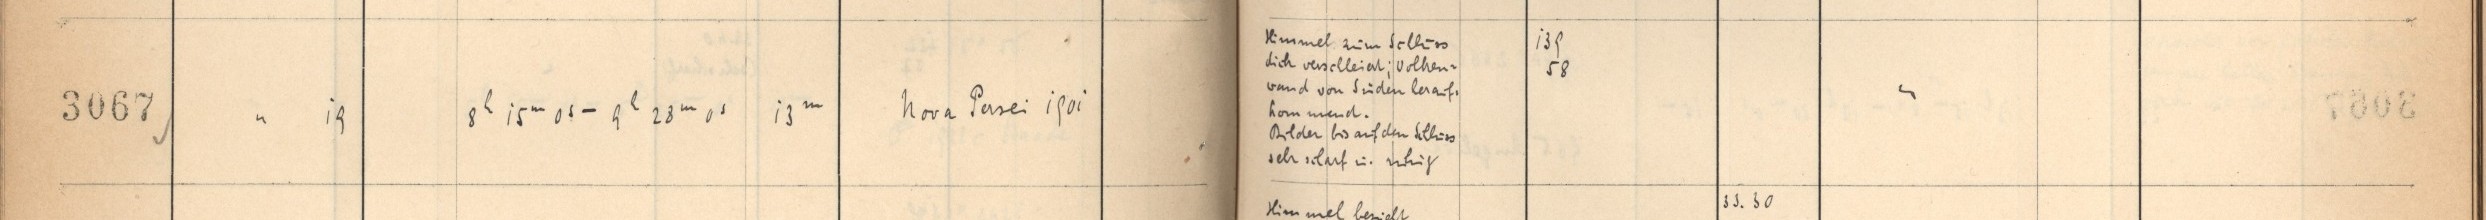 3067 " 19 8h 15m 0s – 9h 28m 0s 13m Nova Persei 1901
Himmel zum Schluss 139
dich verschleiert; Wolken- 58
wand von Süden herauf-
kommend. "
Bilder bis auf den Schluss
sehr scharf u. ruhig
33.30
Himmel bezieht